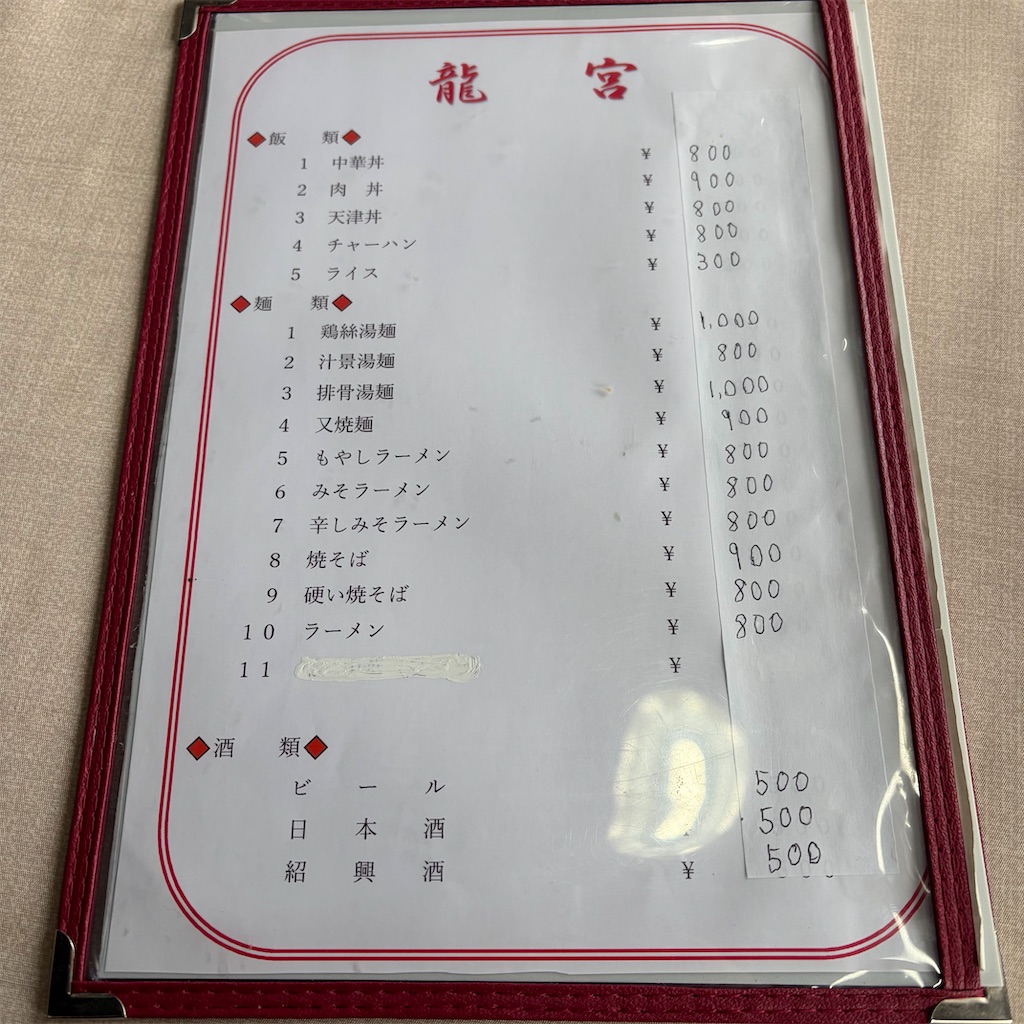 龍 宮
◆飯 類◆
1 中華丼 ¥ 800
2 肉 丼 ¥ 900
3 天津丼 ¥ 800
4 チャーハン ¥ 800
5 ライス ¥ 300
◆麺 類◆
1 鶏絲湯麺 ¥ 1,000
2 汁景湯麺 ¥ 800
3 排骨湯麺 ¥ 1,000
4 又焼麺 ¥ 900
5 もやしラーメン ¥ 800
6 みそラーメン ¥ 800
7 辛しみそラーメン ¥ 800
8 焼そば ¥ 900
9 硬い焼そば ¥ 800
10 ラーメン ¥ 800
11 ¥
◆酒 類◆
ビール 500
日本酒 500
紹興酒 ¥ 500